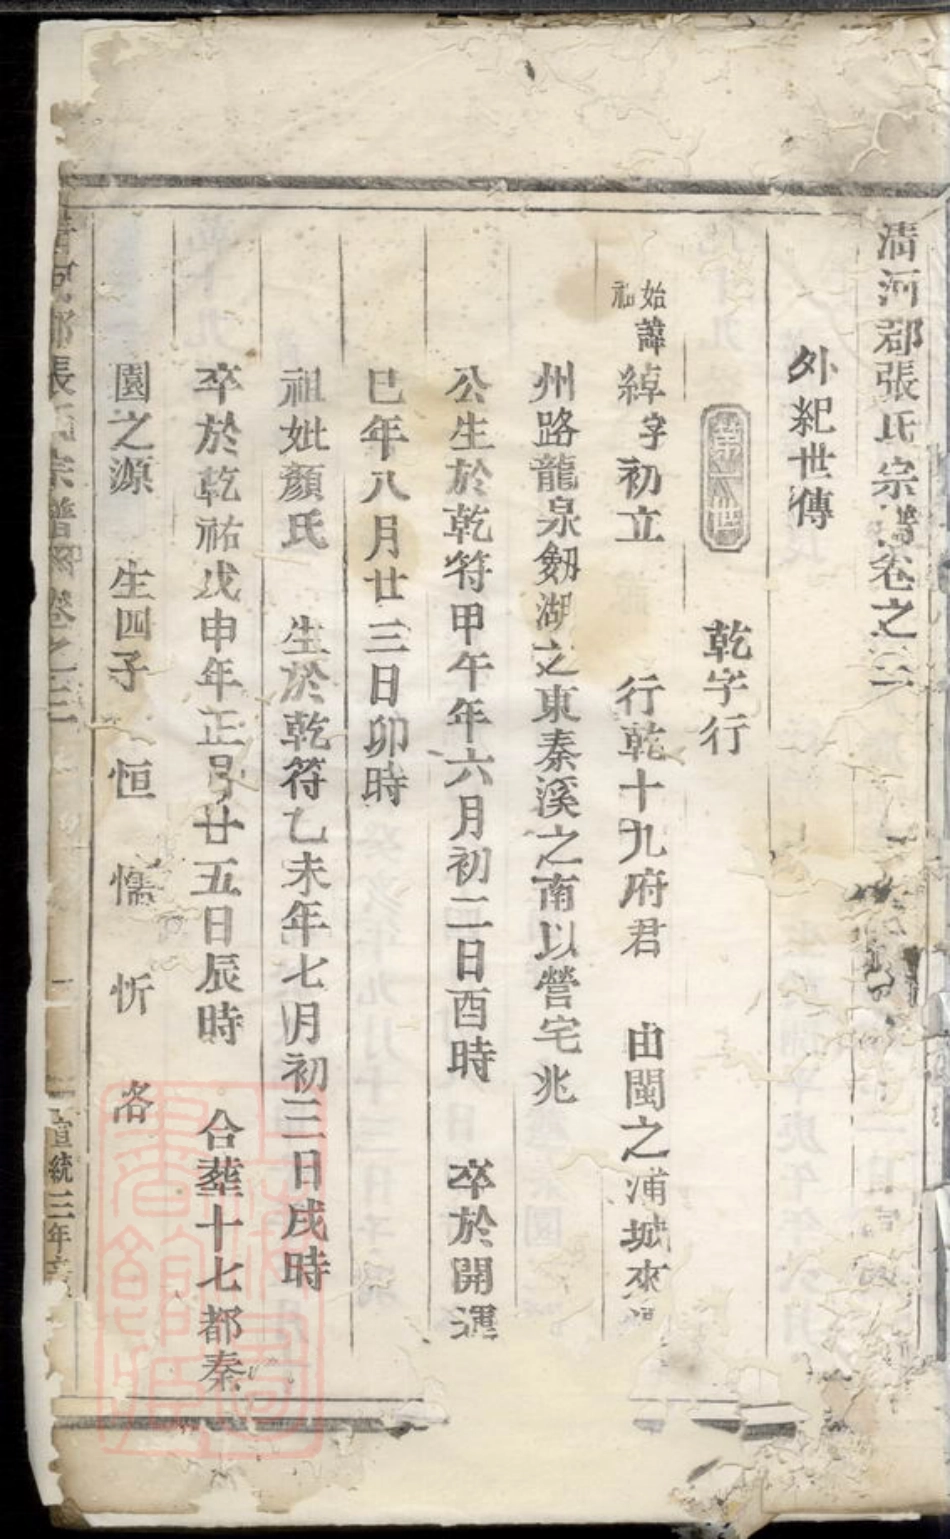 清河郡張氏宗譜卷之三
外紀世傳
第八世 乾字行
始祖 諱綽字初立 行乾十九府君 由閩之浦城來
州路龍泉劔湖之東秦溪之南以營宅兆
公生於乾符甲午年六月初二日酉時 卒於開運
巳年八月廿三日卯時
祖妣顏氏 生於乾符乙未年七月初三日戌時
卒於乾祐戊申年正月廿五日辰時 合塟十七都秦
園之源 生四子 恒 懦 忻 洛
清河郡張氏宗譜 卷之三
宣統三年